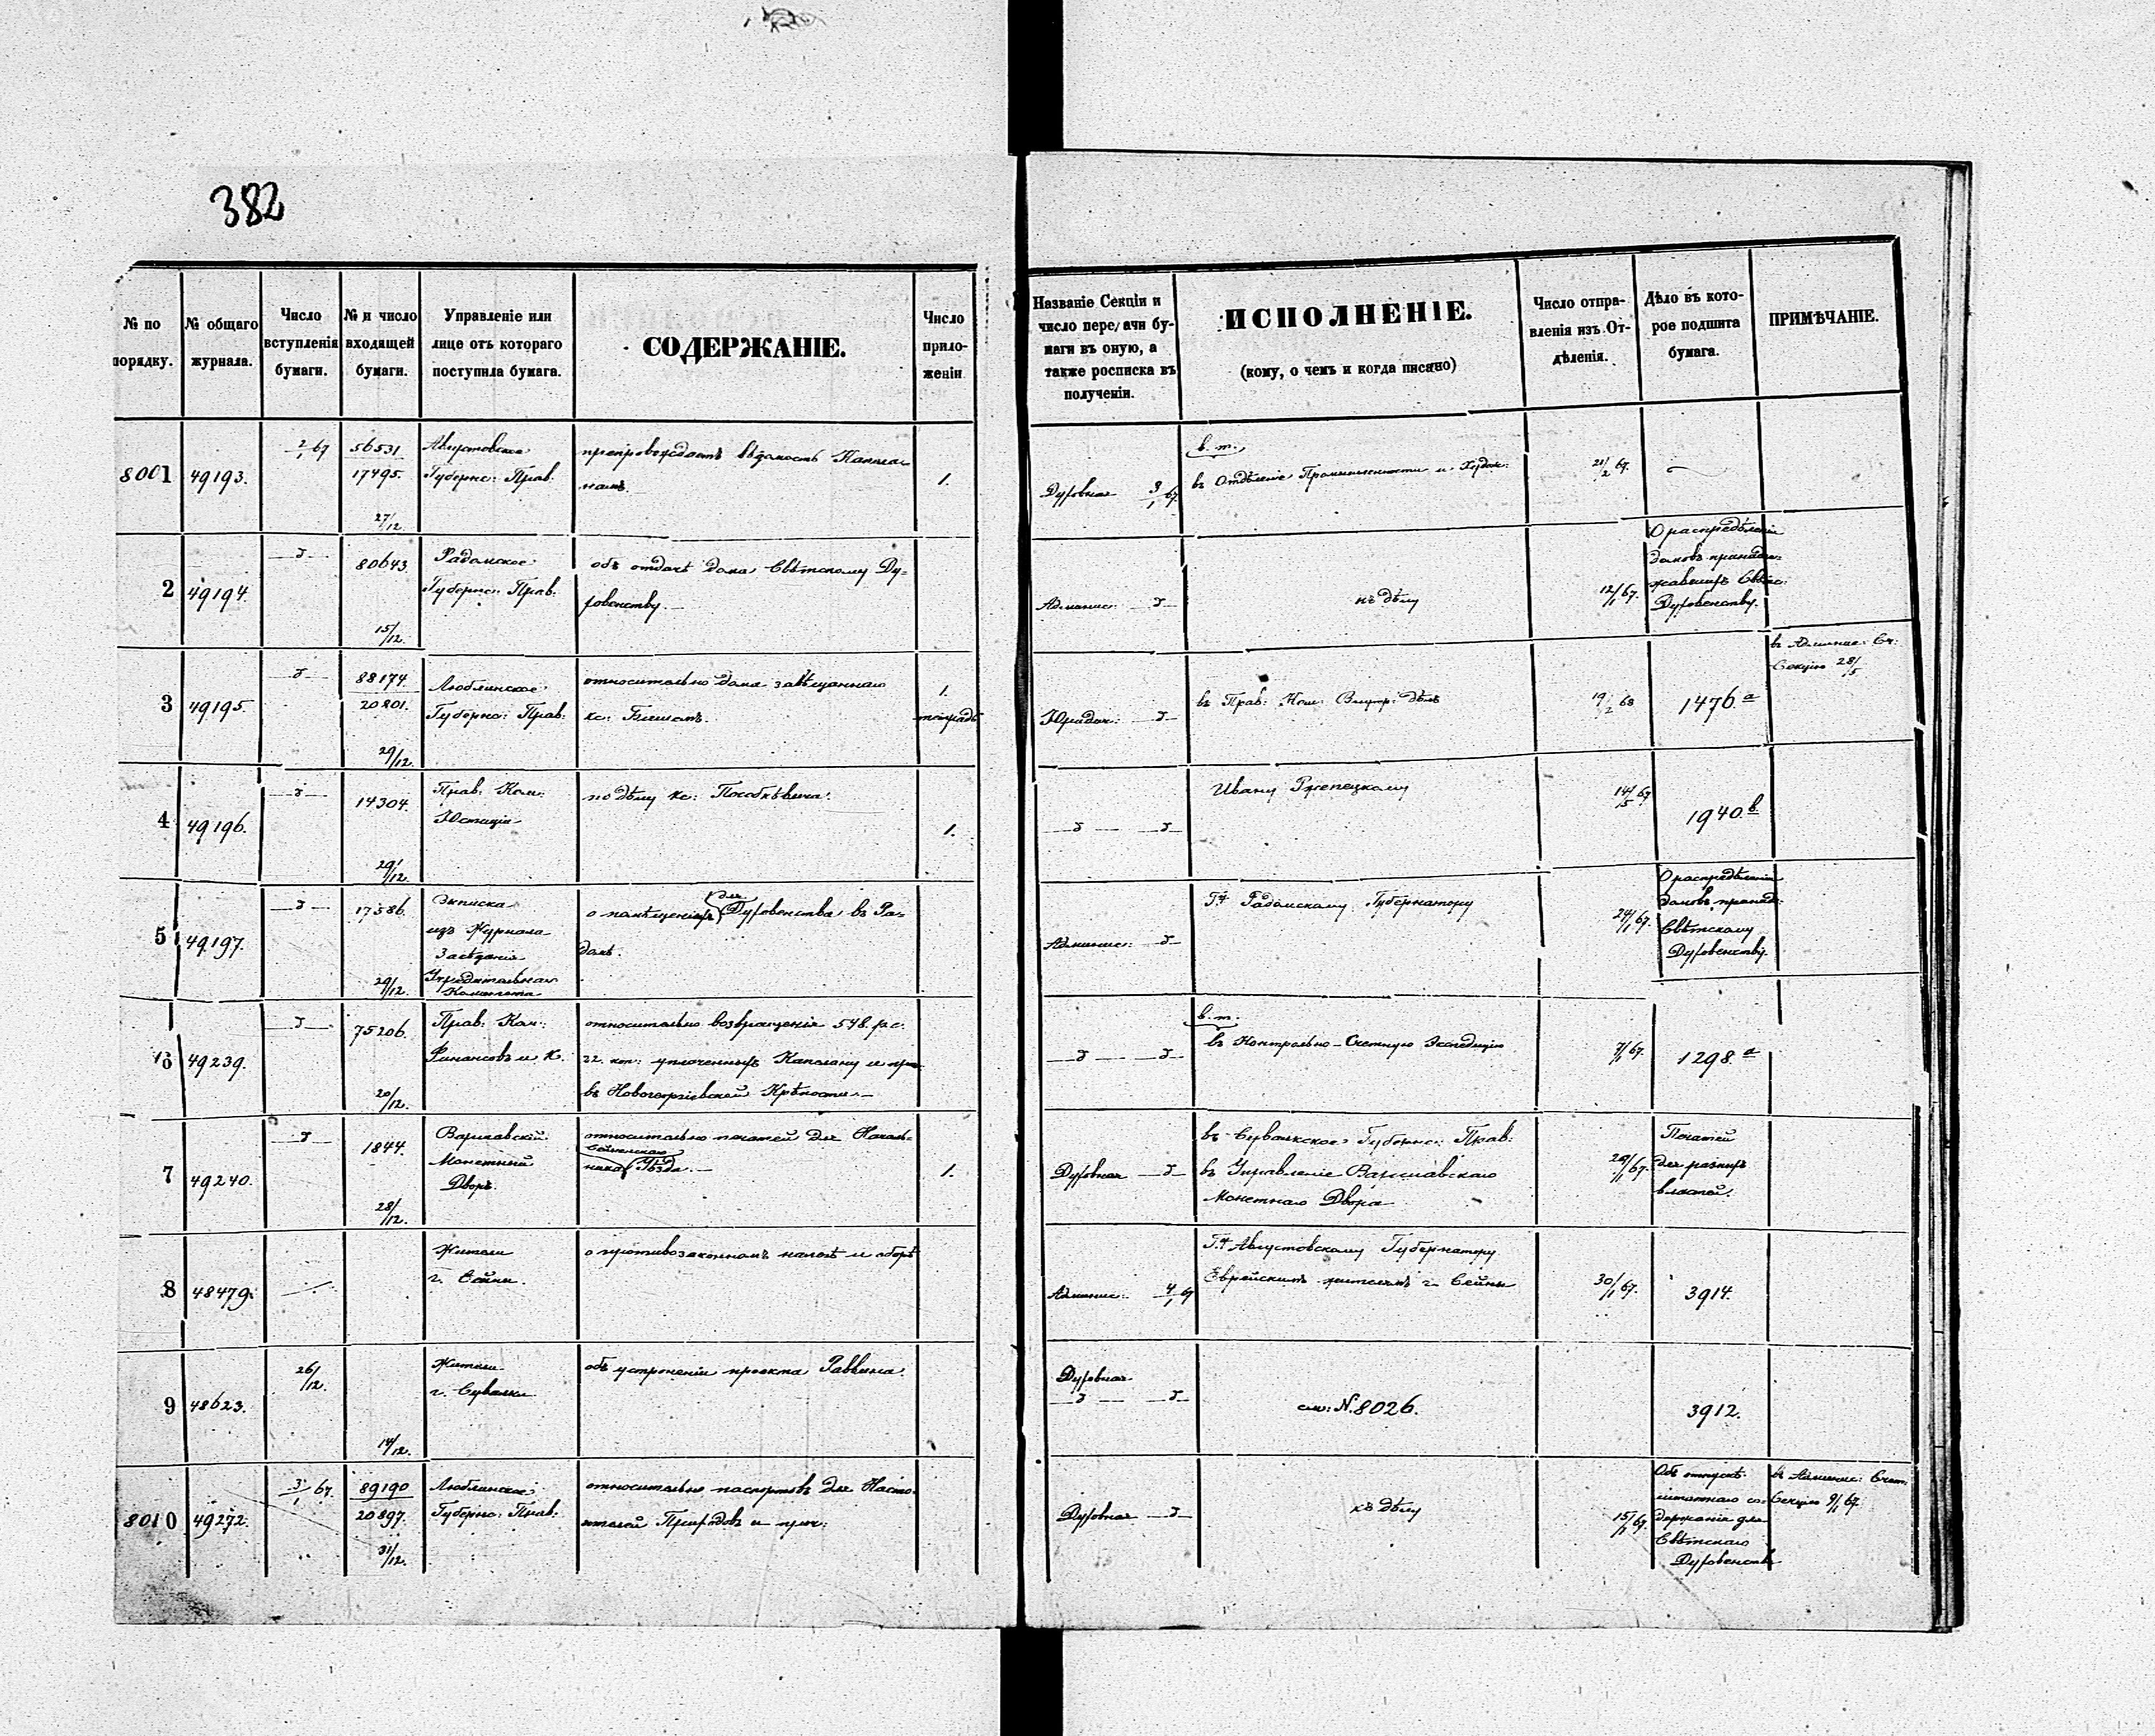 382
№ по порядку.
№ общаго журнала.
Число вступленія бумаги.
№ и число входящей бумаги.
Управленіе или лице отъ котораго поступила бумага.
СОДЕРЖАНІЕ.
Число приложеніи
Названіе Секціи и число передачи бумаги въ оную, а также росписка въ полученіи.
ИСПОЛНЕНІЕ.
(кому, о чемъ и когда писано)
Число отправленія изъ Отдѣленія.
Дѣло въ которое подшита бумага.
ПРИМѢЧАНІЕ.
8001
49193.
2/1 67
56531
17495.
27/12.
Августовское
Губернс: Прав.
препровождаетъ вѣдомость
1.
Духовная 3/1 67
в. т.
въ Отдѣленіе Промышленности и
21/2 67.
2
49194.
80643.
15/12.
Радомское
Губернс: Прав.
объ отдачѣ дома Свѣтскому Ду-
ховенству.
Админис:
къ дѣлу
12/1 67.
О распредѣленіи
домовъ принадле-
жавшихъ Свѣтс:
Духовенству.
3
49195.
88174.
20801.
29/12.
Люблинское
Губернс: Прав:
относительно дома завѣщаннаго
кс:
1.
тетрадь
Юридич:
въ Прав: Ком: Внутр: дѣлъ
19/2 68
1476 а
въ Админис: Сч:
Секцію 28/5
4
49196.
14304.
29/12.
Прав: Ком:
Юстиціи
по дѣлу кс:
1.
Ивану Ржепецкому
14/5 67
1940. в.
5
49197.
17386.
29/12.
Записка
изъ Журнала
Засѣданія
Учредительнаго
Комитета
о помѣщеніяхъ для Духовенства въ Ра-
домѣ.
Админис:
Г. Радомскому Губернатору
24/1 67.
О распредѣленіи
домовъ принад:
Свѣтскому
Духовенству
6
49239.
75206.
20/12.
Прав: Ком:
Финансовъ и К.
относительно возвращенія 548. рс.
32 коп: уплоченныхъ Капелану и проч
въ Новогеоргіевской Крѣпости
в. т.
въ Контрольно-Счетную Экспедицію
7/1 67.
1298. а
7
49240.
1844.
28/12.
Варшавскій
Монетный
Дворъ.
относительно печатей для Началь-
ника Сейненскаго Уѣзда.
1.
Духовная
въ Сувалкское Губернс: Прав:
въ Управленіе Варшавскаго
Монетнаго Двора
29/1 67.
Печатей
для разныхъ
властей.
8
48479.
Жители
г. Сейны.
о противозаконномъ налогѣ и сборѣ
Админис: 4/1 67
Г. Августовскому Губернатору
Еврейскимъ жителямъ г. Сейны
30/1 67.
3914.
9
48623.
26/12.
14/12.
Жители
г. Сувалки
объ устроненіи проекта Раввина.
Духовная
см: N. 8026.
3912.
8010
49272.
3/1 67.
89190
20897.
31/12.
Люблинское
Губернс: Прав:
относительно паспортовъ для Насто-
ятелей Приходовъ и проч:
Духовная
къ дѣлу
15/1 67.
Объ отпускѣ
штатнаго со-
держанія для
Свѣтскаго
Духовенства
въ Админис: Счет:
Секцію 9/1 67.